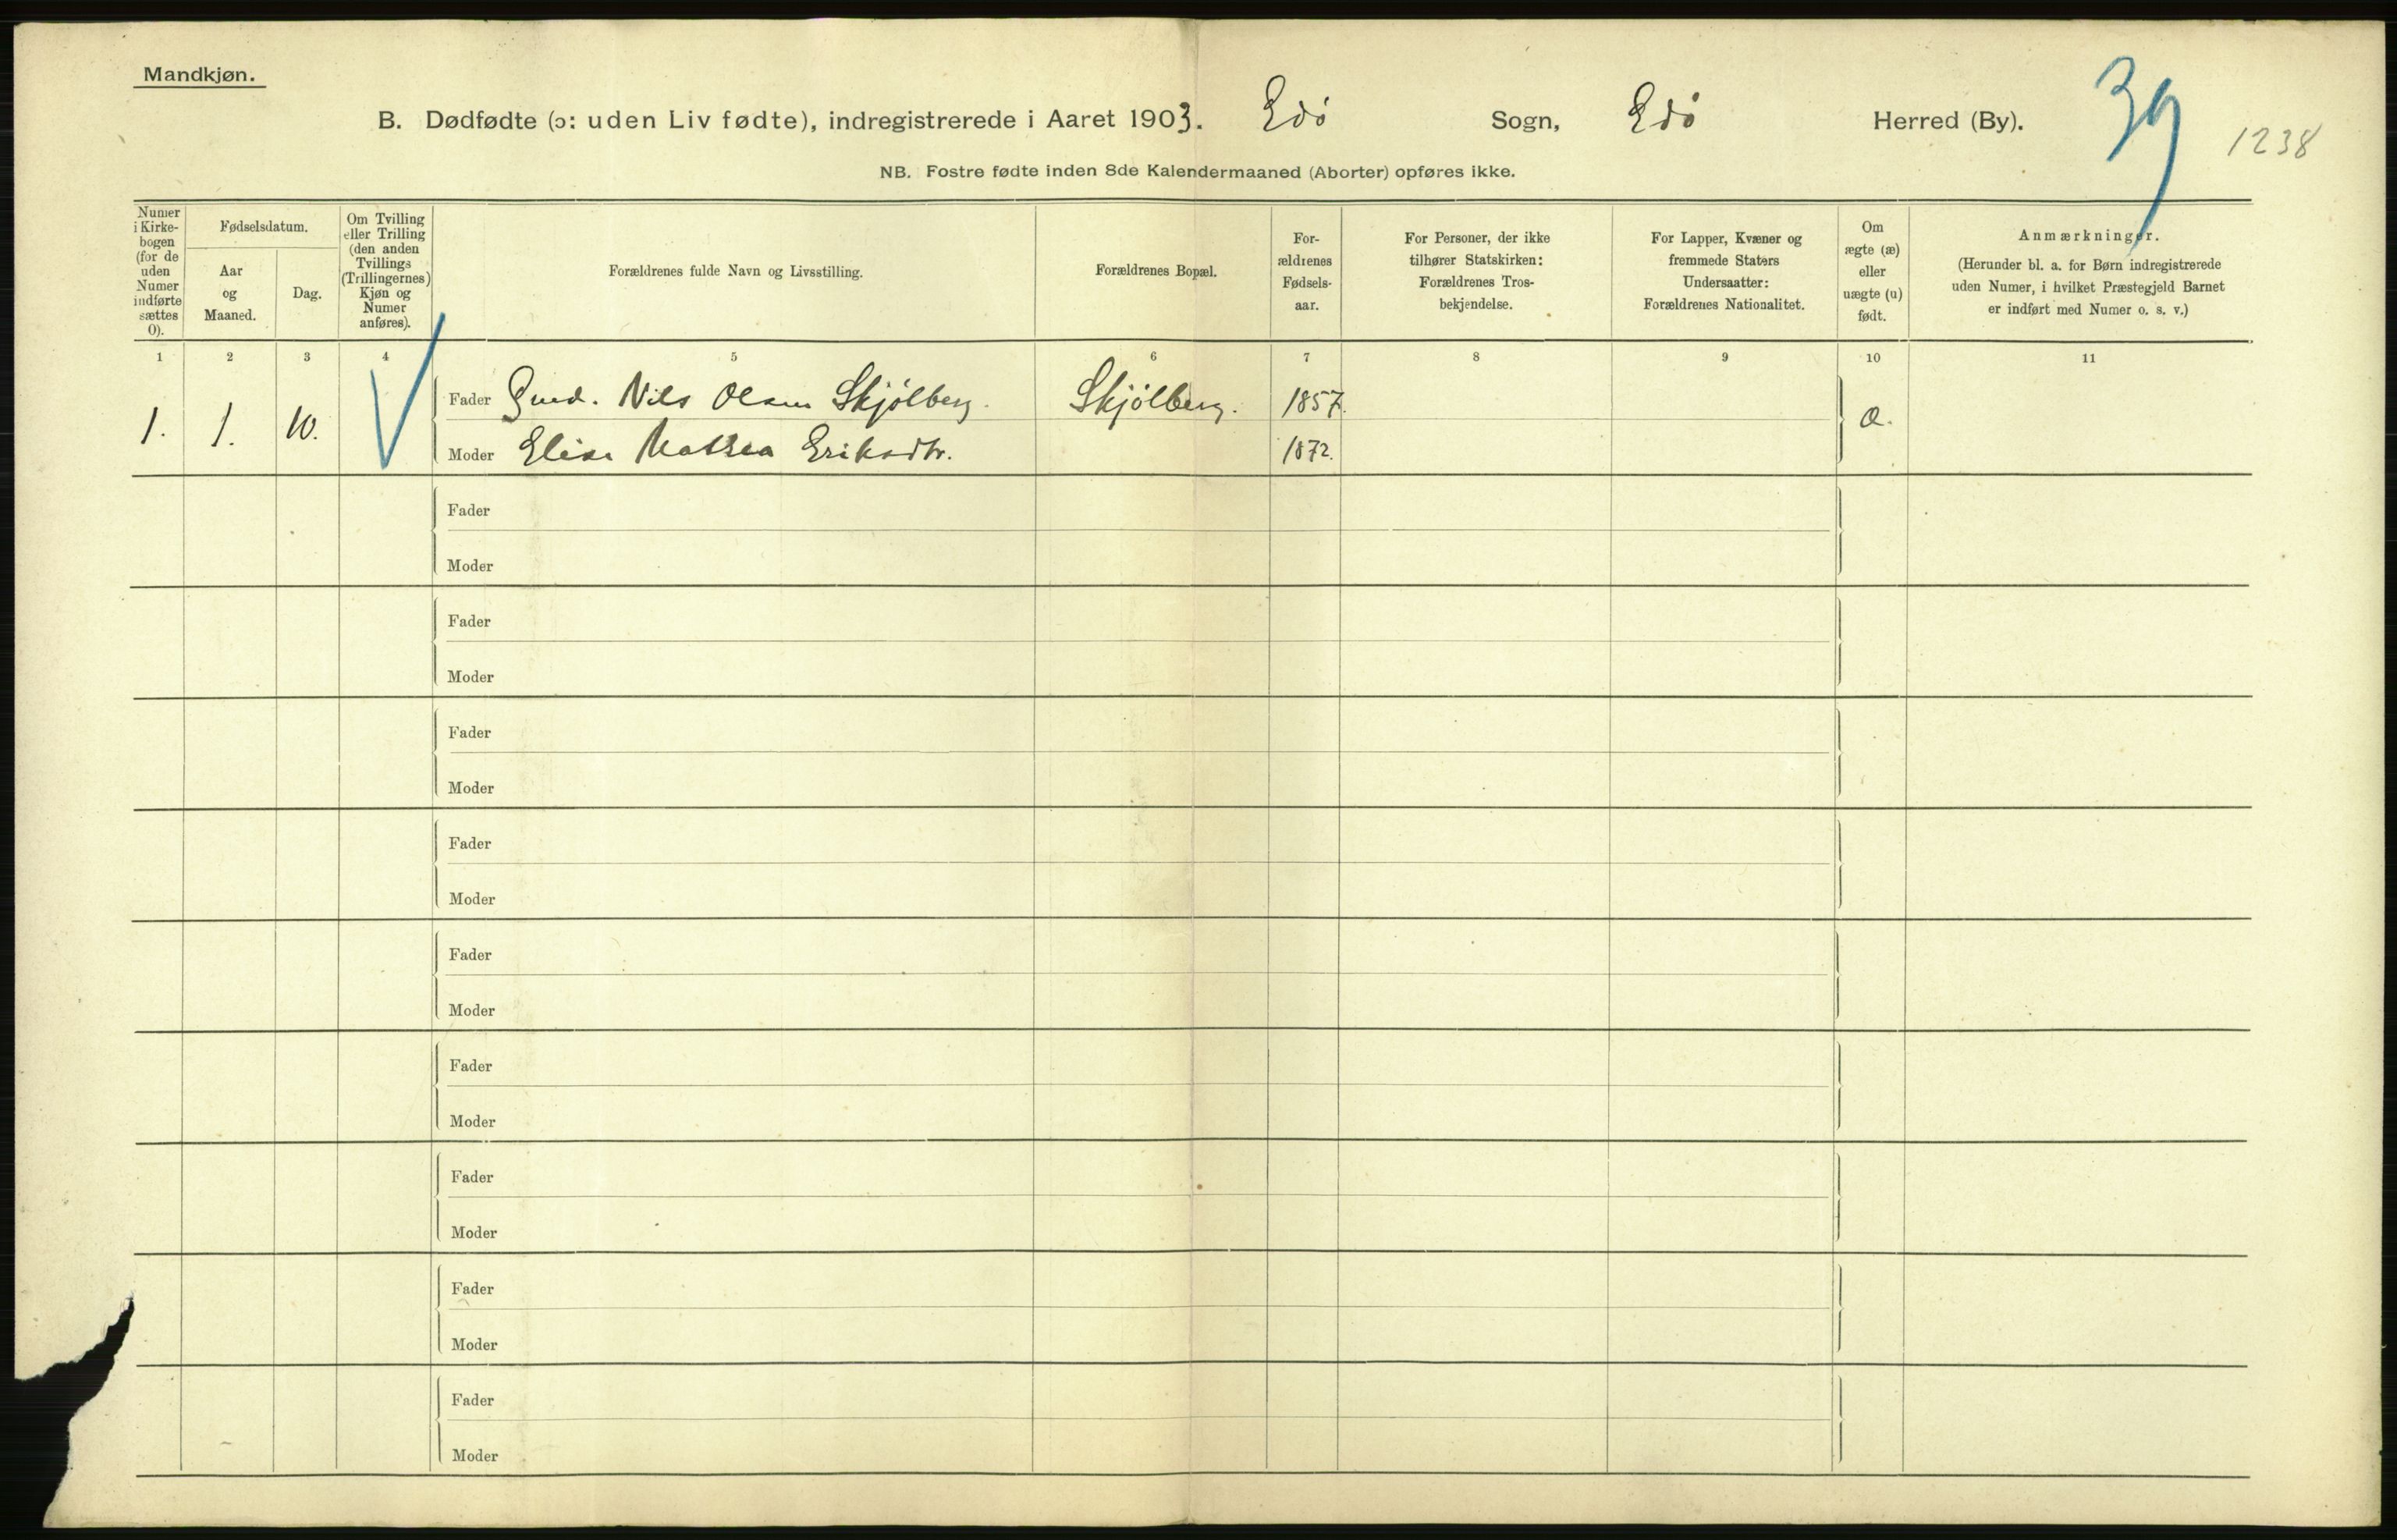 Mandkjøn.
B. Dødfødte (ɔ: uden Liv fødte), indregistrerede i Aaret 1903. Edö Sogn, Edö Herred (By).
39
1238
NB. Fostre fødte inden 8de Kalendermaaned (Aborter) opføres ikke.
Numer
i Kirke-
bogen
(for de
uden
Numer
indførte
sættes
0).
Fødselsdatum.
Aar
og
Maaned.
Dag.
Om Tvilling
eller Trilling
(den anden
Tvillings
(Trillingernes)
Kjøn og
Numer
anføres).
Forældrenes fulde Navn og Livsstilling.
Forældrenes Bopæl.
For-
ældrenes
Fødsels-
aar.
For Personer, der ikke
tilhører Statskirken:
Forældrenes Tros-
bekjendelse.
For Lapper, Kvæner og
fremmede Staters
Undersaatter:
Forældrenes Nationalitet.
Om
ægte (æ)
eller
uægte (u)
født.
Anmærkninger.
(Herunder bl. a. for Børn indregistrerede
uden Numer, i hvilket Præstegjeld Barnet
er indført med Numer o. s. v.)
1 2 3 4 5 6 7 8 9 10 11
Fader Gmd. Nils Olsen Skjölberg. Skjölberg. 1857.
1. 1. 10. æ.
Moder Elise Mathea Eriksdtr. 1872.
Fader
Moder
Fader
Moder
Fader
Moder
Fader
Moder
Fader
Moder
Fader
Moder
Fader
Moder
Fader
Moder
Fader
Moder